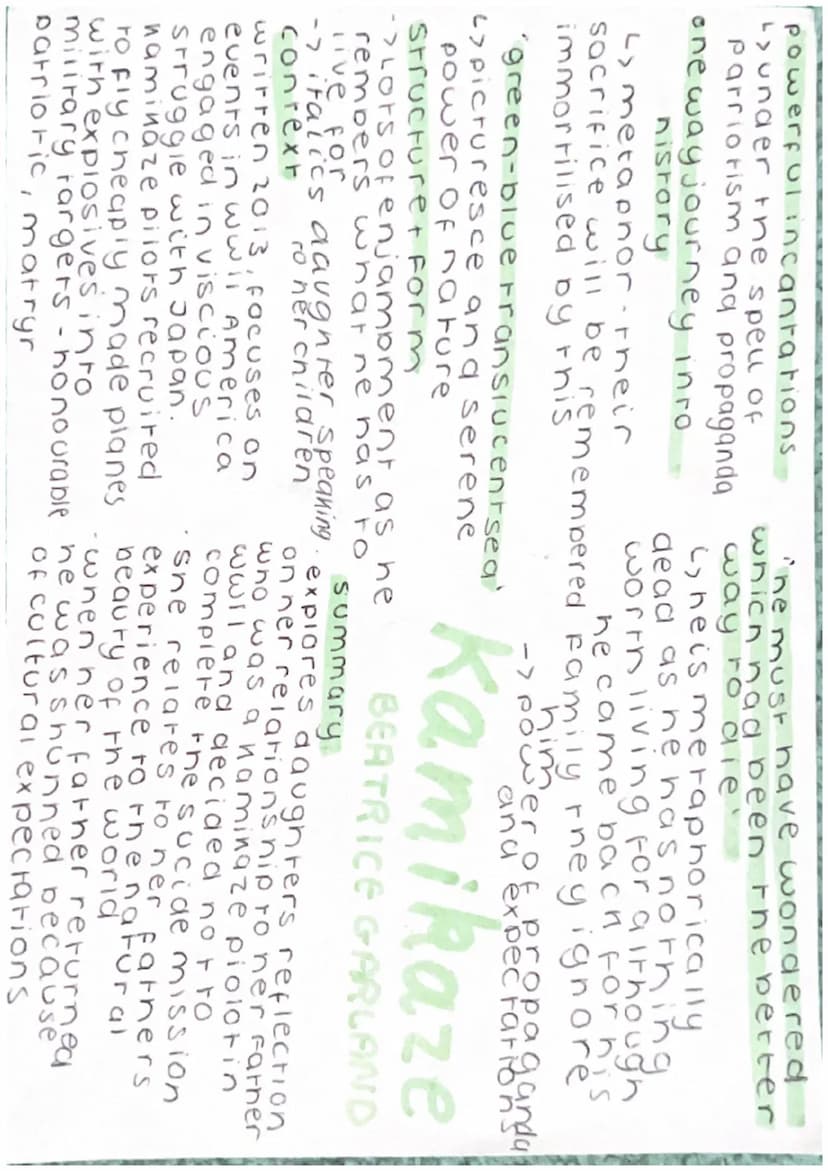 powerful incantrations
↳ under the spell of
patriotism and propaganda
one way journey into
history
↳ metaphor - their
sacrifice will be remembered
immortilised by this
'green-blue translucent sea'
↳ picturesce and serene
power of nature
structure + form
-> lots of enjambment as he
rembers what he has to
live for
-> italics daughter speaking
to her children
context
written 2013, focuses on
events in wwII America
engaged in viscious
struggle with Japan.
kamikaze pilots recruited
to fly cheaply made planes
with explosives into
military targets - honourable
patriotic, matryr
"he must have wondered
which had been the better
way to die'
↳ he is metaphorically
dead as he has nothing
worth living for although
he came back for his
family they ignore
him
-> power of propaganda
and expectations
kamikaze
BEATRICE GARLAND
summary
· explores daughters reflection
on her relationship to her father
who was a kamikaze piolot in
wwII and decided not to
complete the sucide mission
· she relates to her fathers
experience to the natural
beauty of the world
· when her father returned
he was shunned because
of cultural expectations